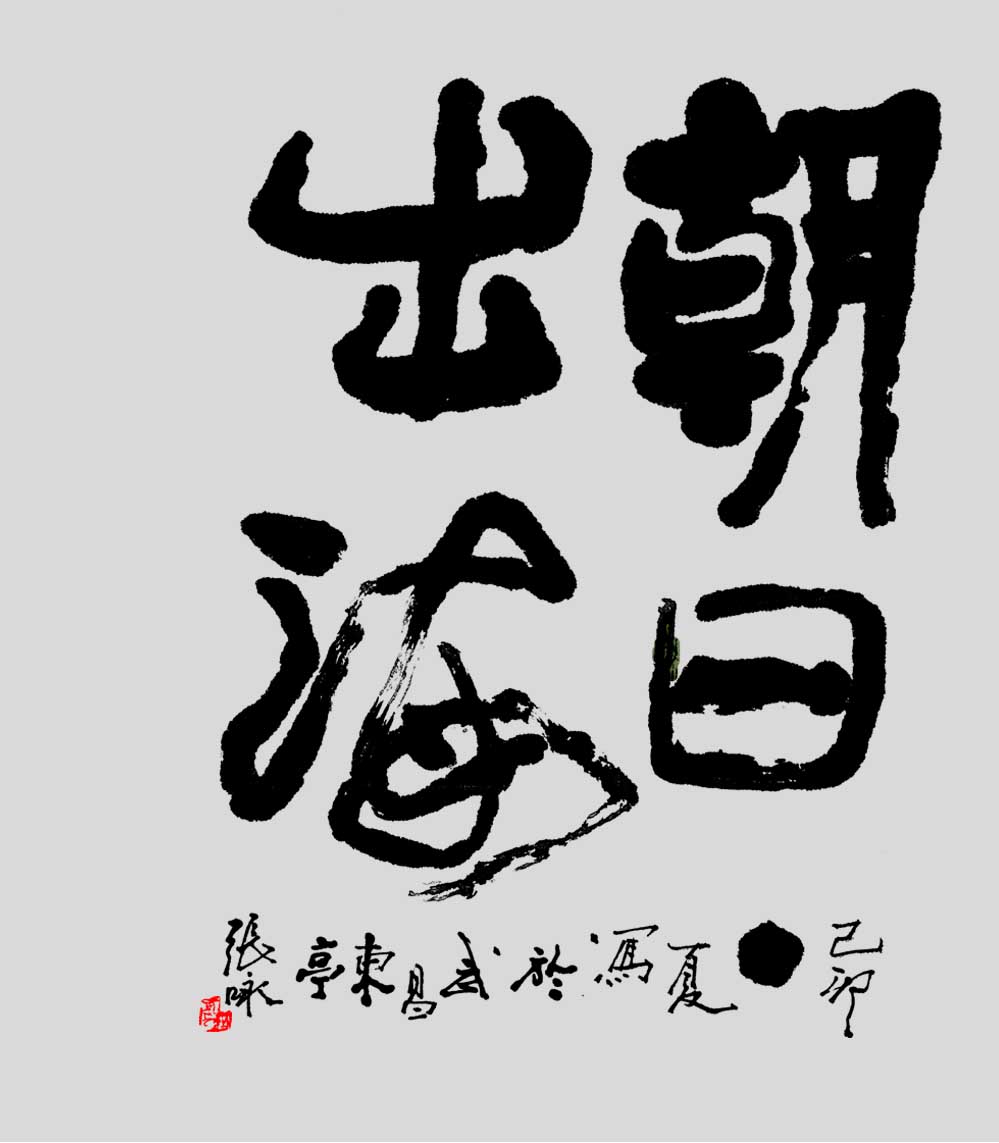 朝日
出海
己卯夏寫於武昌東亭
張咏